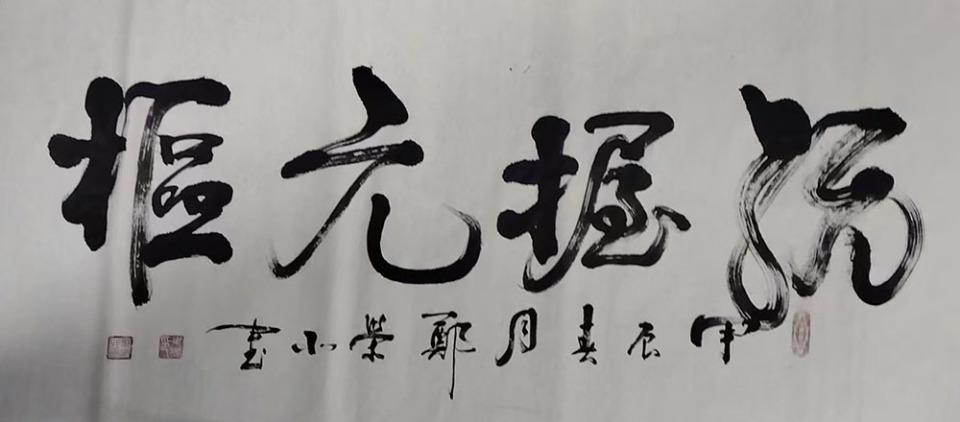 統握元樞
甲辰春月鄭榮小書